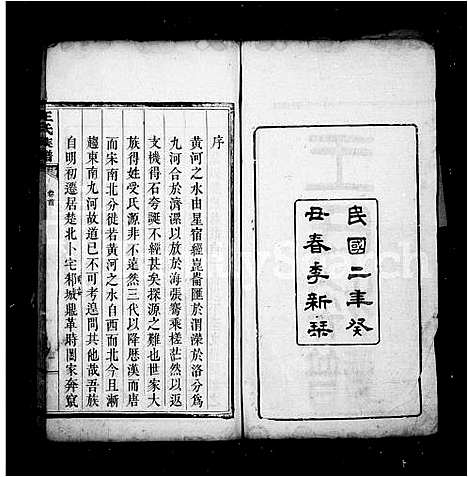 民國二年癸
丑春季新琹
王氏族譜
卷首
序
黃河之水由星宿經崑崙匯於渭濚於洛分爲
九河合於濟漯以放於海張騫乘槎茫然以返
支機得石夸誕不經甚矣探源之難也世家大
族得姓受氏源非不遠然三代以降歷漢而唐
而宋南北分徙若黃河之水自西而北今且漸
趨東南九河故道已不可考遑問其他哉吾族
自明初遷居楚北卜宅邾城鼎革時闔家奔竄